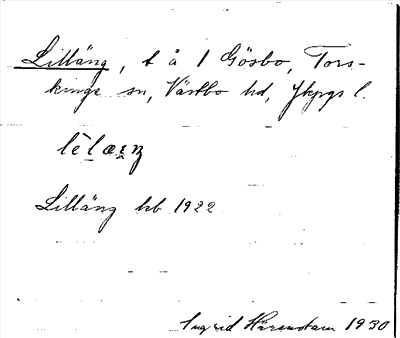 Lilläng, t å 1 Gösbo, Tors-
kinge sn, Västbo hd, Jkpgs l.
Lilläng hb 1922
Ingrid Härenstam 1930